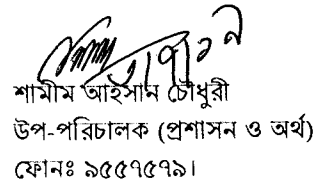 শামীম আহসান চৌধুরী
উপ-পরিচালক (প্রশাসন ও অর্থ)
ফোনঃ ৯৫৫৭৫৭৯।